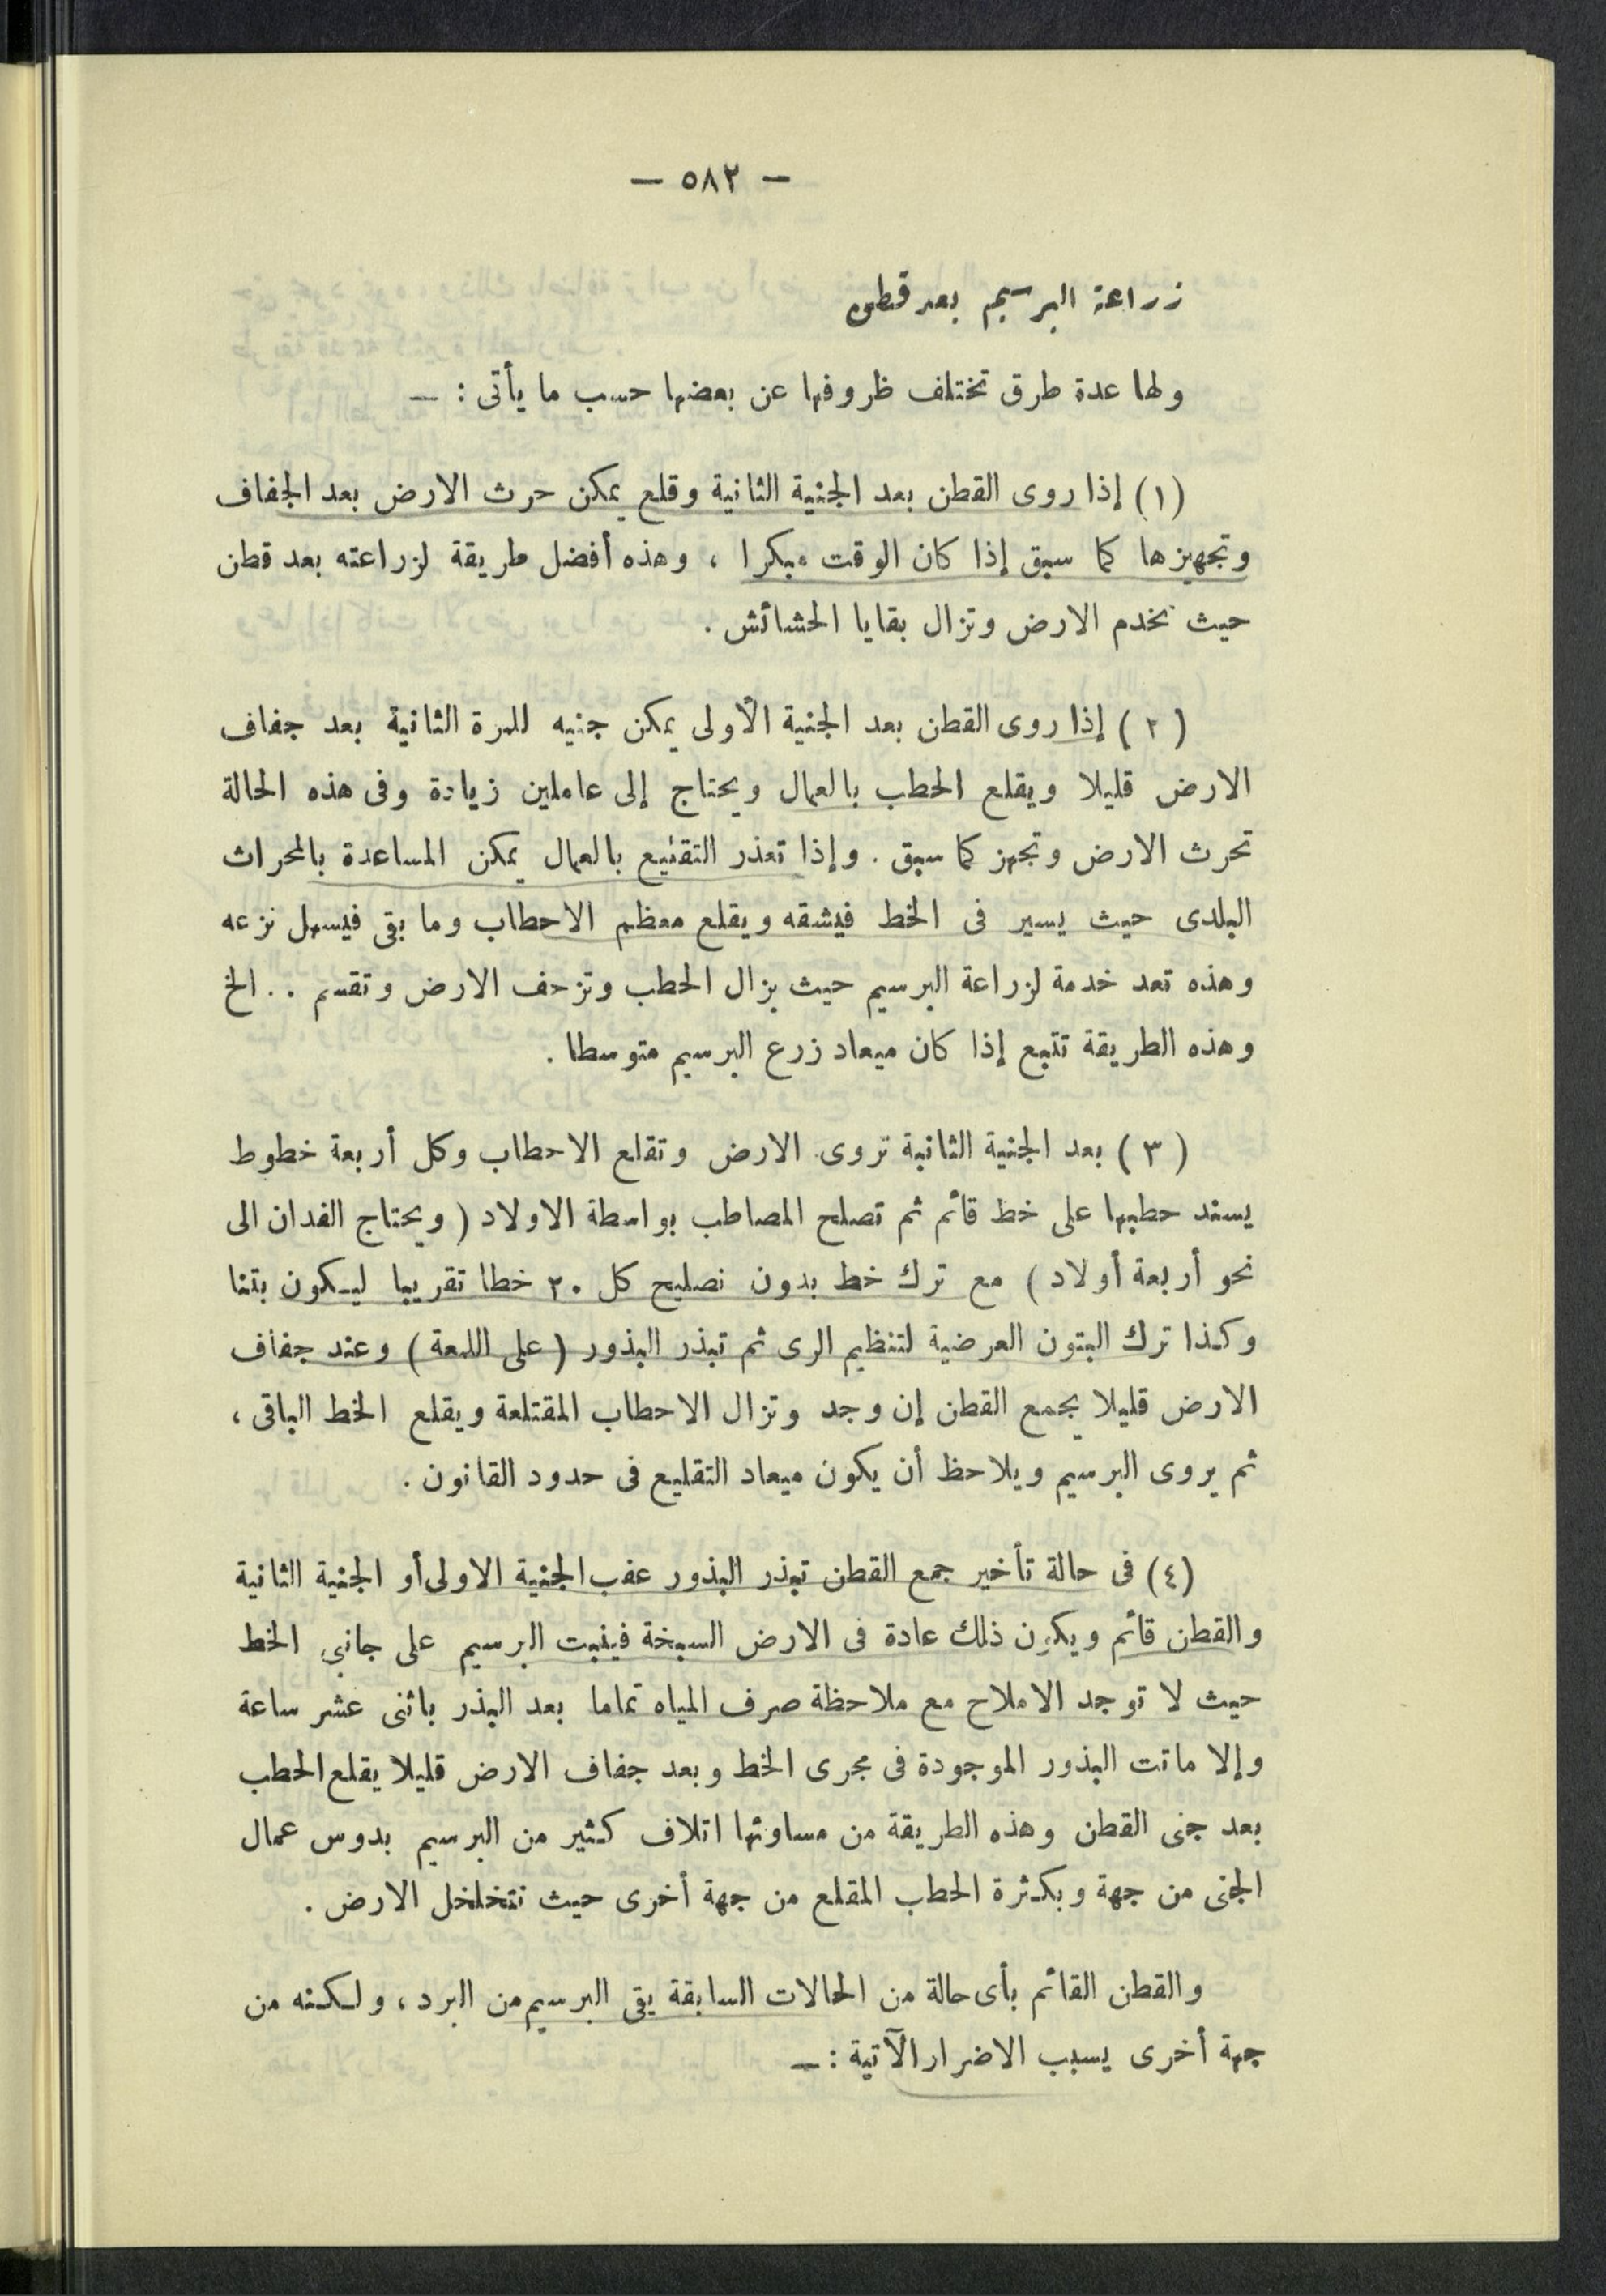 — ٥٨٢ —
زراعة البرسيم بعد قطن
ولها عدة طرق تختلف ظروفها عن بعضها حسب ما يأتى : —
(١) إذا روى القطن بعد الجنية الثانية وقلع يمكن حرث الارض بعد الجفاف
وتجهيزها كما سبق إذا كان الوقت مبكرا ، وهذه أفضل طريقة لزراعته بعد قطن
حيث تخدم الارض وتزال بقايا الحشائش .
( ٢ ) إذا روى القطن بعد الجنية الأولى يمكن جنيه للمرة الثانية بعد جفاف
الارض قليلا ويقلع الحطب بالعمال ويحتاج إلى عاملين زيادة وفى هذه الحالة
تحرث الارض وتجهز كما سبق . وإذا تعذر التقليع بالعمال يمكن المساعدة بالمحراث
البلدى حيث يسير فى الخط فيشقه ويقلع معظم الاحطاب وما بقى فيسهل نزعه
وهذه تعد خدمة لزراعة البرسيم حيث يزال الحطب وتزحف الارض وتقسم . . الخ
وهذه الطريقة تتبع إذا كان ميعاد زرع البرسيم متوسطا .
( ٣ ) بعد الجنية الثانية تروى الارض وتقلع الاحطاب وكل أربعة خطوط
يسند حطبها على خط قائم ثم تصلح المصاطب بواسطة الاولاد ( ويحتاج الفدان الى
نحو أربعة أولاد ) مع ترك خط بدون تصليح كل ٢٠ خطا تقريبا ليكون بتنا
وكذا ترك البتون العرضية لتنظيم الرى ثم تبذر البذور ( على اللمعة ) وعند جفاف
الارض قليلا يجمع القطن إن وجد وتزال الاحطاب المقتلعة ويقلع الخط الباقى ،
ثم يروى البرسيم ويلاحظ أن يكون ميعاد التقليع فى حدود القانون .
(٤) فى حالة تأخير جمع القطن تبذر البذور عقب الجنية الاولى أو الجنية الثانية
والقطن قائم ويكون ذلك عادة فى الارض السبخة فينبت البرسيم على جانبى الخط
حيث لا توجد الاملاح مع ملاحظة صرف المياه تماما بعد البذر باثنى عشر ساعة
وإلا ماتت البذور الموجودة فى مجرى الخط وبعد جفاف الارض قليلا يقلع الحطب
بعد جنى القطن وهذه الطريقة من مساوئها اتلاف كثير من البرسيم بدوس عمال
الجنى من جهة وبكثرة الحطب المقلع من جهة أخرى حيث تتخلخل الارض .
والقطن القائم بأى حالة من الحالات السابقة يقى البرسيم من البرد ، ولكنه من
جهة أخرى يسبب الاضرار الآتية : —